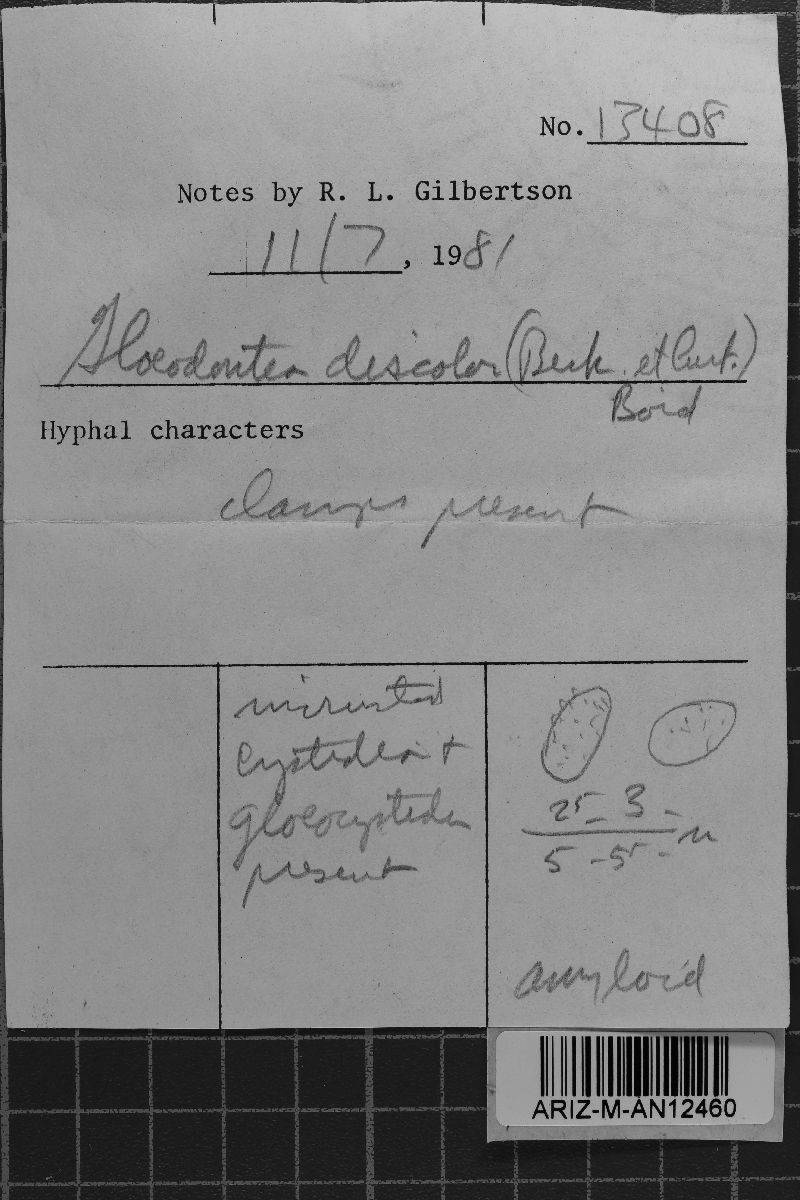 No. 13408
Notes by R. L. Gilbertson
11/7, 1981
Gloeodontia discolor (Berk. et Curt.)
Boid
Hyphal characters
clamps present
incrusted
cystidia +
gloeocystidia
present
25 - 3 -
5 - 55 - u
amyloid
ARIZ-M-AN12460